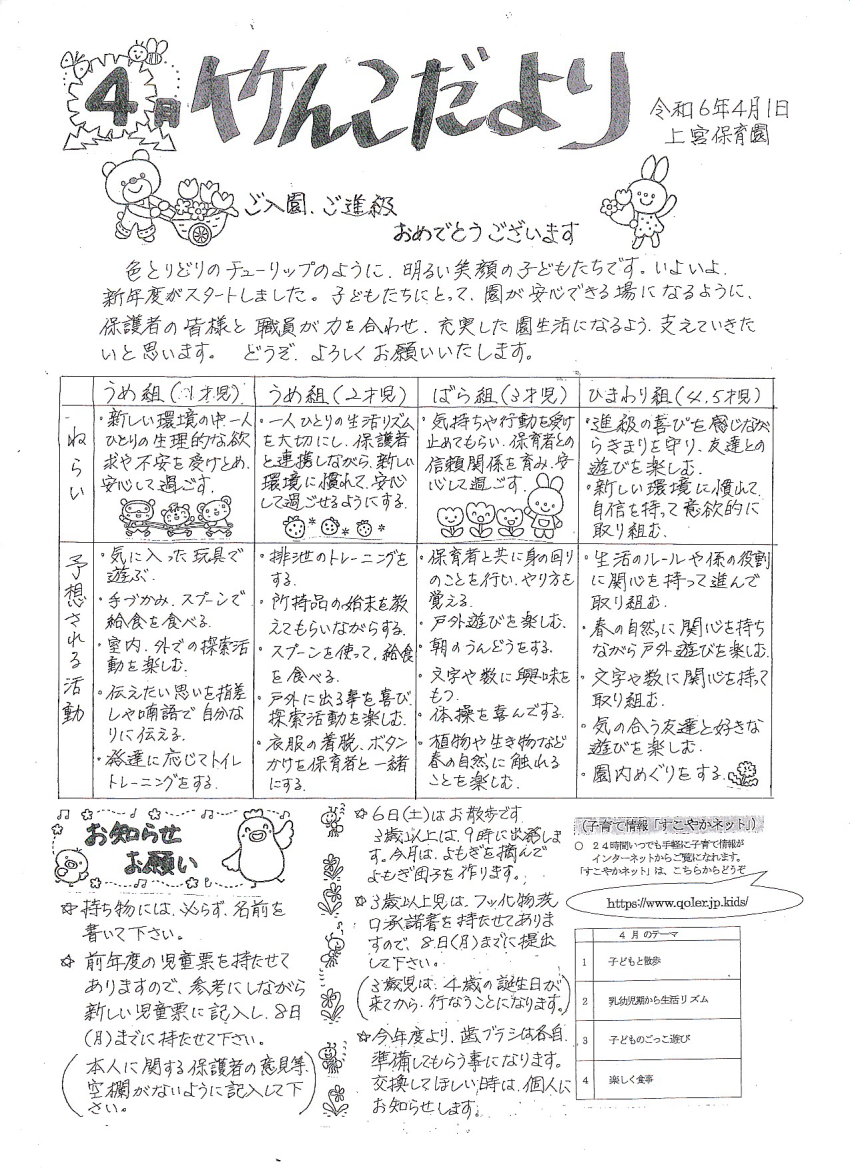 4月
竹んこだより
令和6年4月1日
上宮保育園
ご入園、ご進級
おめでとうございます
色とりどりのチューリップのように、明るい笑顔の子どもたちです。いよいよ、
新年度がスタートしました。子どもたちにとって、園が安心できる場になるように、
保護者の皆様と職員が力を合わせ、充実した園生活になるよう、支えていきた
いと思います。 どうぞ、よろしくお願いいたします。
うめ組(1才児)
うめ組(2才児)
ばら組(3才児)
ひまわり組(4,5才児)
ねらい
・新しい環境の中一人
ひとりの生理的な欲
求や不安を受けとめ、
安心して過ごす。
・一人ひとりの生活リズム
を大切にし、保護者
と連携しながら、新しい
環境に慣れて、安心
して過ごせるようにする。
・気持ちや行動を受け
止めてもらい、保育者との
信頼関係を育み、安
心して過ごす。
・進級の喜びを感じなが
らきまりを守り、友達との
遊びを楽しむ。
・新しい環境に慣れて、
自信を持って意欲的に
取り組む。
予想される活動
・気に入った玩具で
遊ぶ。
・手づかみ、スプーンで
給食を食べる。
・室内、外での探索活
動を楽しむ。
・伝えたい思いを指差
しや喃語で自分な
りに伝える。
・発達に応じてトイレ
トレーニングをする。
・排泄のトレーニングを
する。
・所持品の始末を教
えてもらいながらする。
・スプーンを使って、給食
を食べる。
・戸外に出る事を喜び、
探索活動を楽しむ。
・衣服の着脱、ボタン
かけを保育者と一緒
にする。
・保育者と共に身の回り
のことを行い、やり方を
覚える。
・戸外遊びを楽しむ。
・朝のうんどうをする。
・文字や数に興味を
もつ。
・体操を喜んでする。
・植物や生き物など
春の自然に触れる
ことを楽しむ。
・生活のルールや係の役割
に関心を持って進んで
取り組む。
・春の自然に関心を持ち
ながら戸外遊びを楽しむ。
・文字や数に関心を持って
取り組む。
・気の合う友達と好きな
遊びを楽しむ。
・園内めぐりをする。
お知らせ
お願い
☆持ち物には、必らず、名前を
書いて下さい。
☆前年度の児童票を持たせて
ありますので、参考にしながら
新しい児童票に記入し、8日
(月)までに持たせて下さい。
(本人に関する保護者の意見等、
空欄がないように記入して下
さい。)
☆6日(土)はお散歩です。
3歳以上は、9時に出発しま
す。今月は、よもぎを摘んで
よもぎ団子を作ります。
☆3歳以上児は、フッ化物洗
口承諾書を持たせてありま
すので、8日(月)までに提出
して下さい。
(3歳児は、4歳の誕生日が
来てから、行なうことになります。)
☆今年度より、歯ブラシは各自、
準備してもらう事になります。
交換してほしい時は、個人に
お知らせします。
(子育て情報「すこやかネット」)
○ 24時間いつでも手軽に子育て情報が
インターネットからご覧になれます。
「すこやかネット」は、こちらからどうぞ
https://www.qoler.jp.kids/
4 月 のテーマ
1 子どもと散歩
2 乳幼児期から生活リズム
3 子どものごっこ遊び
4 楽しく食事